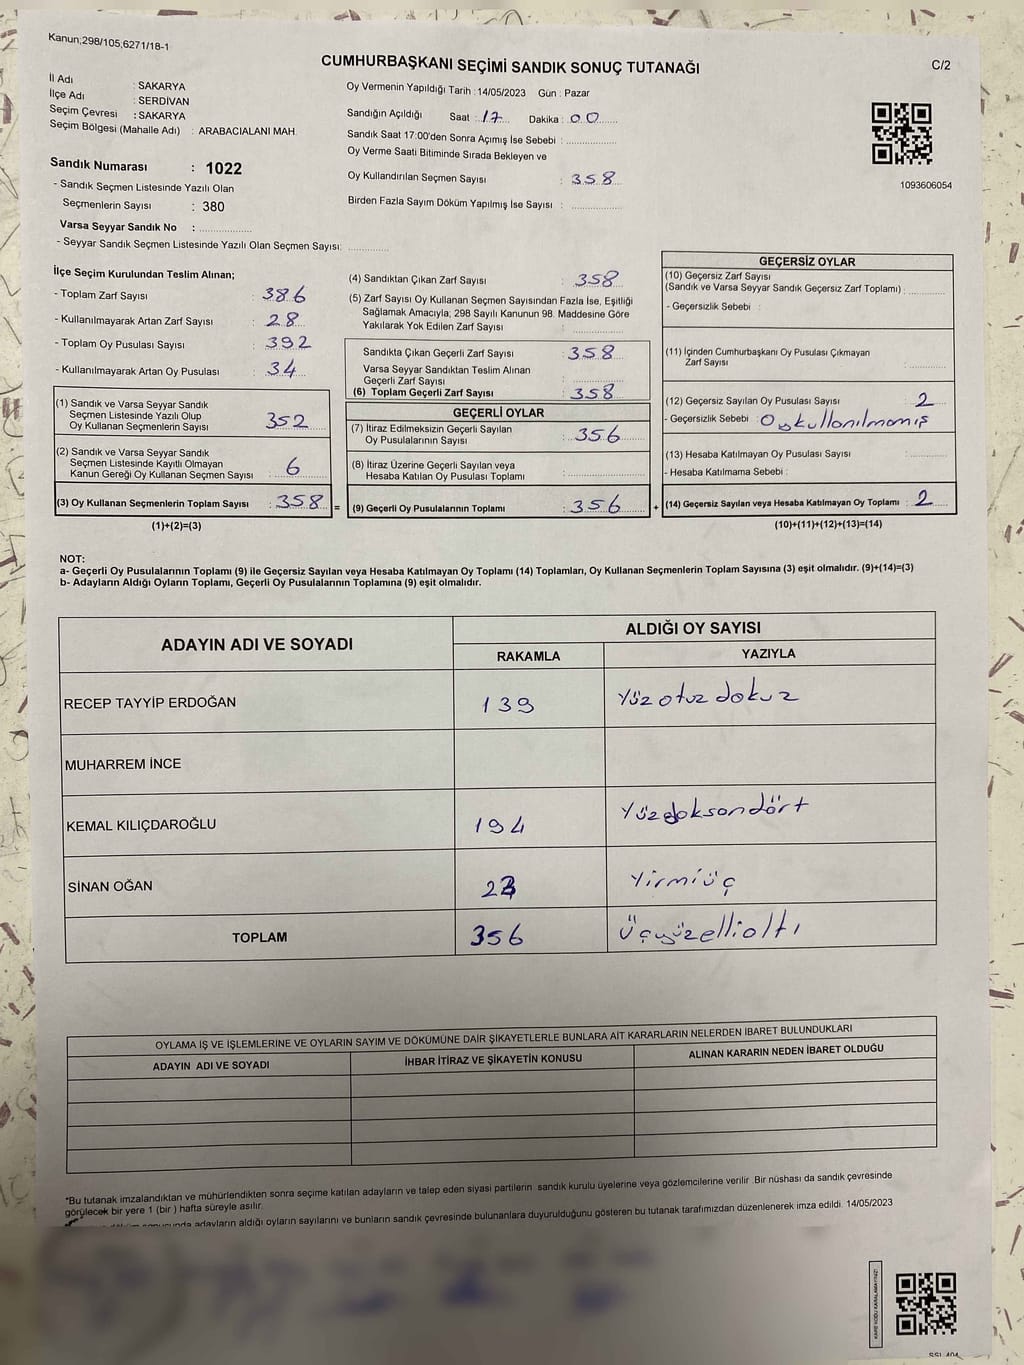 Kanun;298/105,6271/18-1
CUMHURBAŞKANI SEÇİMİ SANDIK SONUÇ TUTANAĞI
C/2
İl Adı : SAKARYA
İlçe Adı : SERDİVAN
Seçim Çevresi : SAKARYA
Seçim Bölgesi (Mahalle Adı) : ARABACIALANI MAH.
Sandık Numarası : 1022
- Sandık Seçmen Listesinde Yazılı Olan
Seçmenlerin Sayısı : 380
Varsa Seyyar Sandık No :
- Seyyar Sandık Seçmen Listesinde Yazılı Olan Seçmen Sayısı:
Oy Vermenin Yapıldığı Tarih : 14/05/2023 Gün : Pazar
Sandığın Açıldığı Saat : 17 Dakika : 00
Sandık Saat 17:00'den Sonra Açımış İse Sebebi :
Oy Verme Saati Bitiminde Sırada Bekleyen ve
Oy Kullandırılan Seçmen Sayısı : 358
Birden Fazla Sayım Döküm Yapılmış İse Sayısı :
1093606054
İlçe Seçim Kurulundan Teslim Alınan;
- Toplam Zarf Sayısı : 386
- Kullanılmayarak Artan Zarf Sayısı : 28
- Toplam Oy Pusulası Sayısı : 392
- Kullanılmayarak Artan Oy Pusulası : 34
(1) Sandık ve Varsa Seyyar Sandık
Seçmen Listesinde Yazılı Olup
Oy Kullanan Seçmenlerin Sayısı : 352
(2) Sandık ve Varsa Seyyar Sandık
Seçmen Listesinde Kayıtlı Olmayan
Kanun Gereği Oy Kullanan Seçmen Sayısı : 6
(3) Oy Kullanan Seçmenlerin Toplam Sayısı : 358 =
(1)+(2)=(3)
(4) Sandıktan Çıkan Zarf Sayısı : 358
(5) Zarf Sayısı Oy Kullanan Seçmen Sayısından Fazla İse, Eşitliği
Sağlamak Amacıyla; 298 Sayılı Kanunun 98. Maddesine Göre
Yakılarak Yok Edilen Zarf Sayısı :
Sandıkta Çıkan Geçerli Zarf Sayısı : 358
Varsa Seyyar Sandıktan Teslim Alınan
Geçerli Zarf Sayısı :
(6) Toplam Geçerli Zarf Sayısı : 358
GEÇERLİ OYLAR
(7) İtiraz Edilmeksizin Geçerli Sayılan
Oy Pusulalarının Sayısı : 356
(8) İtiraz Üzerine Geçerli Sayılan veya
Hesaba Katılan Oy Pusulası Toplamı :
(9) Geçerli Oy Pusulalarının Toplamı : 356 +
GEÇERSİZ OYLAR
(10) Geçersiz Zarf Sayısı
(Sandık ve Varsa Seyyar Sandık Geçersiz Zarf Toplamı) :
- Geçersizlik Sebebi :
(11) İçinden Cumhurbaşkanı Oy Pusulası Çıkmayan
Zarf Sayısı :
(12) Geçersiz Sayılan Oy Pusulası Sayısı : 2
- Geçersizlik Sebebi : Oy kullanılmamış
(13) Hesaba Katılmayan Oy Pusulası Sayısı :
- Hesaba Katılmama Sebebi :
(14) Geçersiz Sayılan veya Hesaba Katılmayan Oy Toplamı : 2
(10)+(11)+(12)+(13)=(14)
NOT:
a- Geçerli Oy Pusulalarının Toplamı (9) ile Geçersiz Sayılan veya Hesaba Katılmayan Oy Toplamı (14) Toplamları, Oy Kullanan Seçmenlerin Toplam Sayısına (3) eşit olmalıdır. (9)+(14)=(3)
b- Adayların Aldığı Oyların Toplamı, Geçerli Oy Pusulalarının Toplamına (9) eşit olmalıdır.
ADAYIN ADI VE SOYADI
ALDIĞI OY SAYISI
RAKAMLA YAZIYLA
RECEP TAYYİP ERDOĞAN 139 Yüz otuz dokuz
MUHARREM İNCE
KEMAL KILIÇDAROĞLU 194 Yüzdoksandört
SİNAN OĞAN 23 Yirmiüç
TOPLAM 356 Üçyüzellialtı
OYLAMA İŞ VE İŞLEMLERİNE VE OYLARIN SAYIM VE DÖKÜMÜNE DAİR ŞİKAYETLERLE BUNLARA AİT KARARLARIN NELERDEN İBARET BULUNDUKLARI
ADAYIN ADI VE SOYADI İHBAR İTİRAZ VE ŞİKAYETİN KONUSU ALINAN KARARIN NEDEN İBARET OLDUĞU
*Bu tutanak imzalandıktan ve mühürlendikten sonra seçime katılan adayların ve talep eden siyasi partilerin sandık kurulu üyelerine veya gözlemcilerine verilir. Bir nüshası da sandık çevresinde
görülecek bir yere 1 (bir ) hafta süreyle asılır.
adayların aldığı oyların sayılarını ve bunların sandık çevresinde bulunanlara duyurulduğunu gösteren bu tutanak tarafımızdan düzenlenerek imza edildi. 14/05/2023